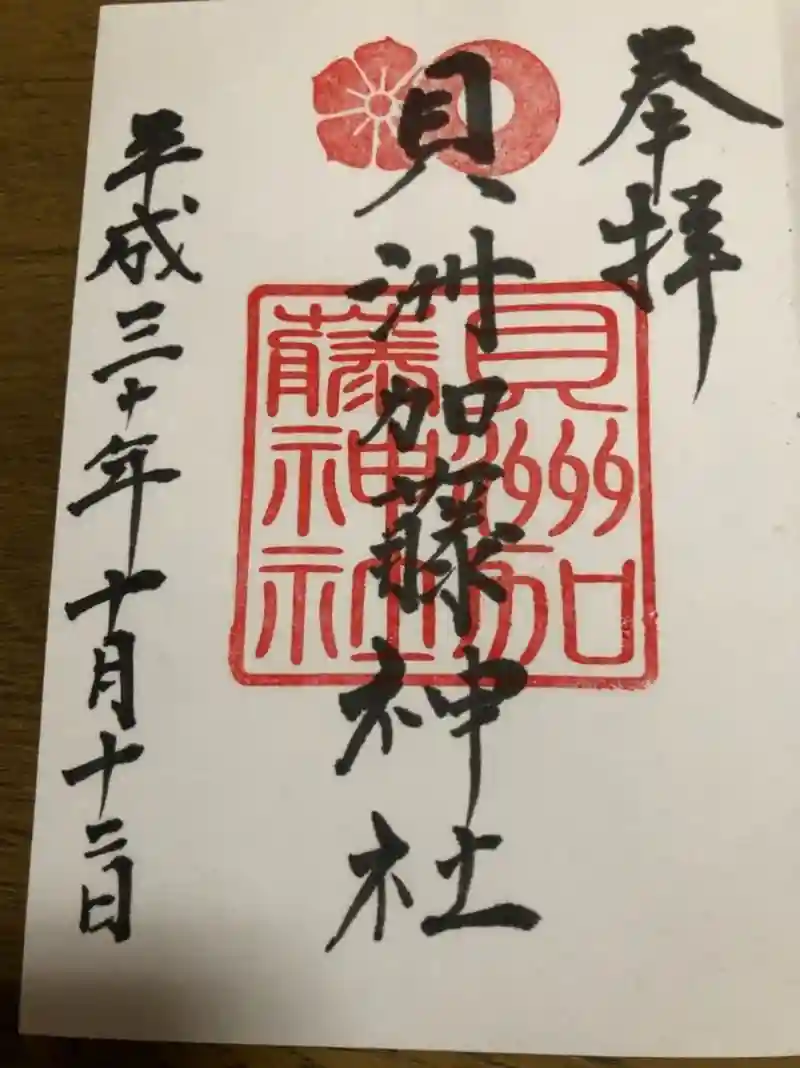 奉拝
貝洲加藤神社
貝州加
藤神社
平成三十年十月十二日